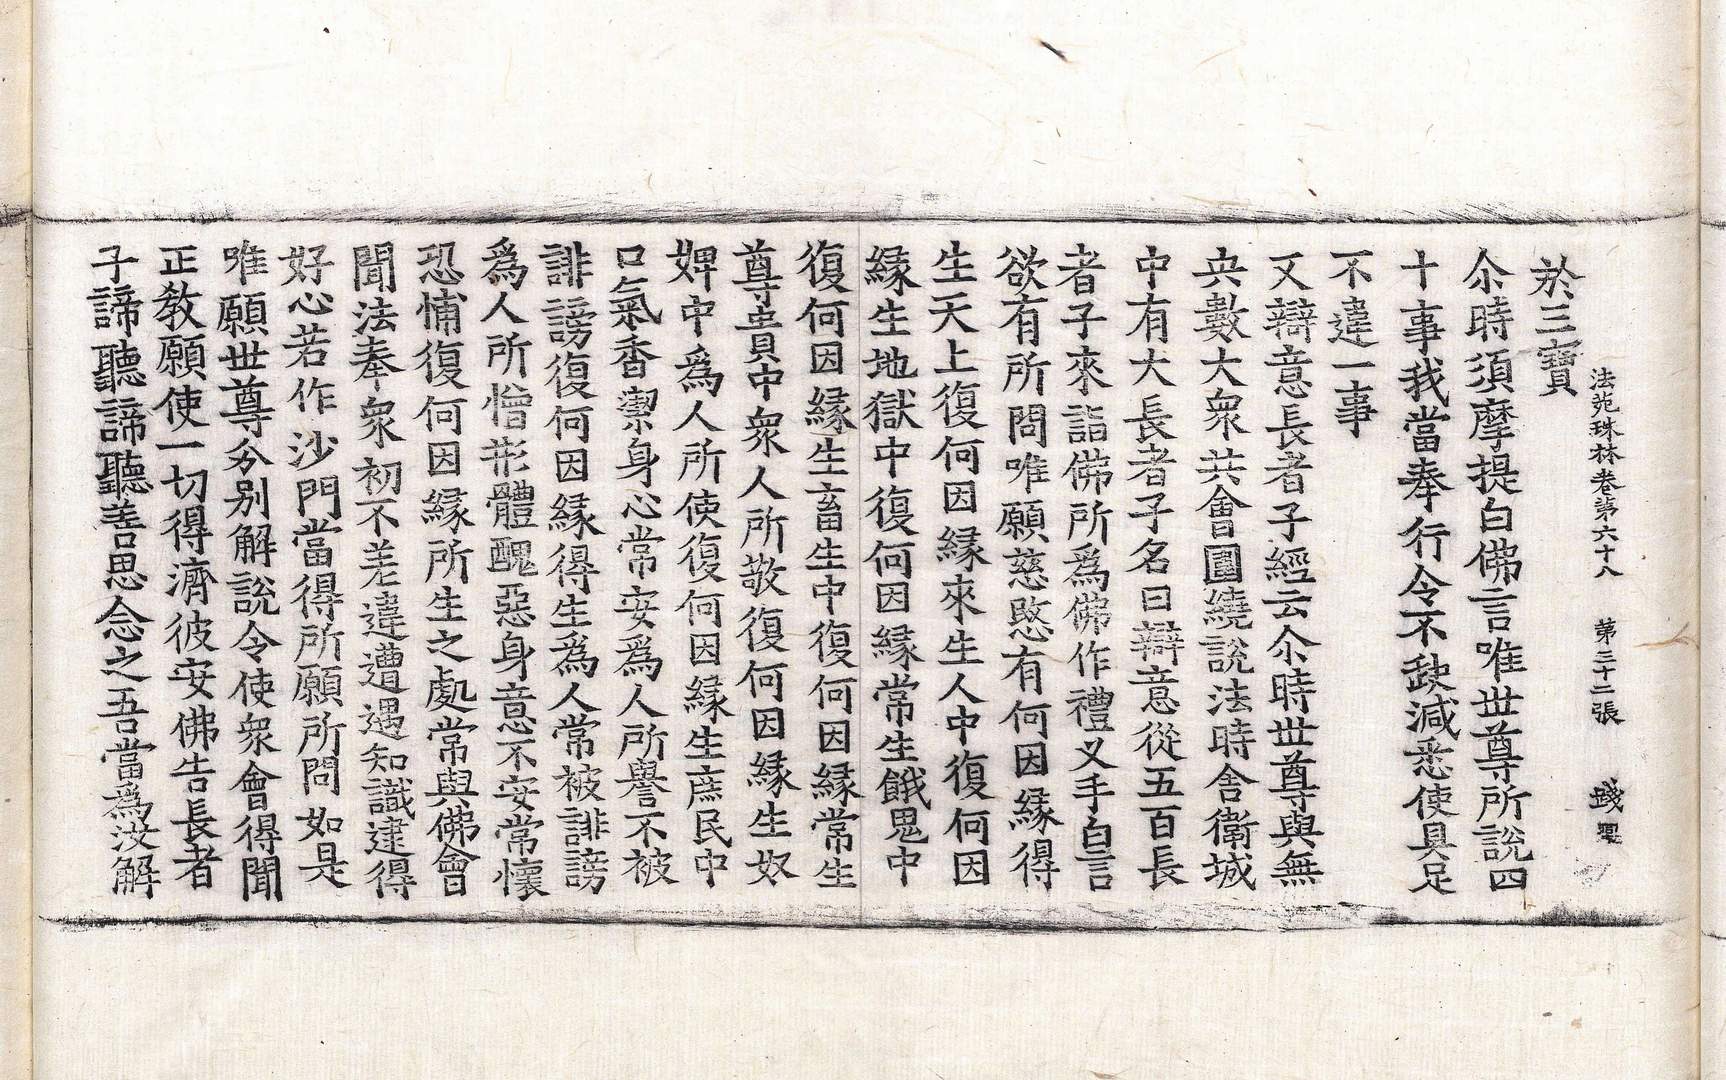 於三寶
法苑珠林卷第六十八　第三十二張
尒時須摩提白佛言唯世尊所說四
十事我當奉行令不缺減悉使具足
不違一事
又辯意長者子經云尒時世尊與無
央數大衆共會圍繞說法時舍衛城
中有大長者子名曰辯意從五百長
者子來詣佛所爲佛作禮叉手白言
欲有所問唯願慈愍有何因緣得
生天上復何因緣來生人中復何因
緣生地獄中復何因緣常生餓鬼中
復何因緣生畜生中復何因緣常生
尊貴中衆人所敬復何因緣生奴
婢中爲人所使復何因緣生庶民中
口氣香潔身心常安爲人所譽不被
誹謗復何因緣得生爲人常被誹謗
爲人所憎形體醜惡身意不安常懷
恐怖復何因緣所生之處常與佛會
聞法奉衆初不差違遭遇知識逮得
好心若作沙門當得所願所問如是
唯願世尊分別解說令使衆會得聞
正教願使一切得濟彼安佛告長者
子諦聽諦聽善思念之吾當爲汝解